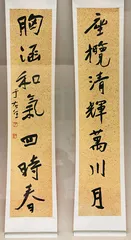 座攬清輝萬川月
胸涵和氣四時春
于右任